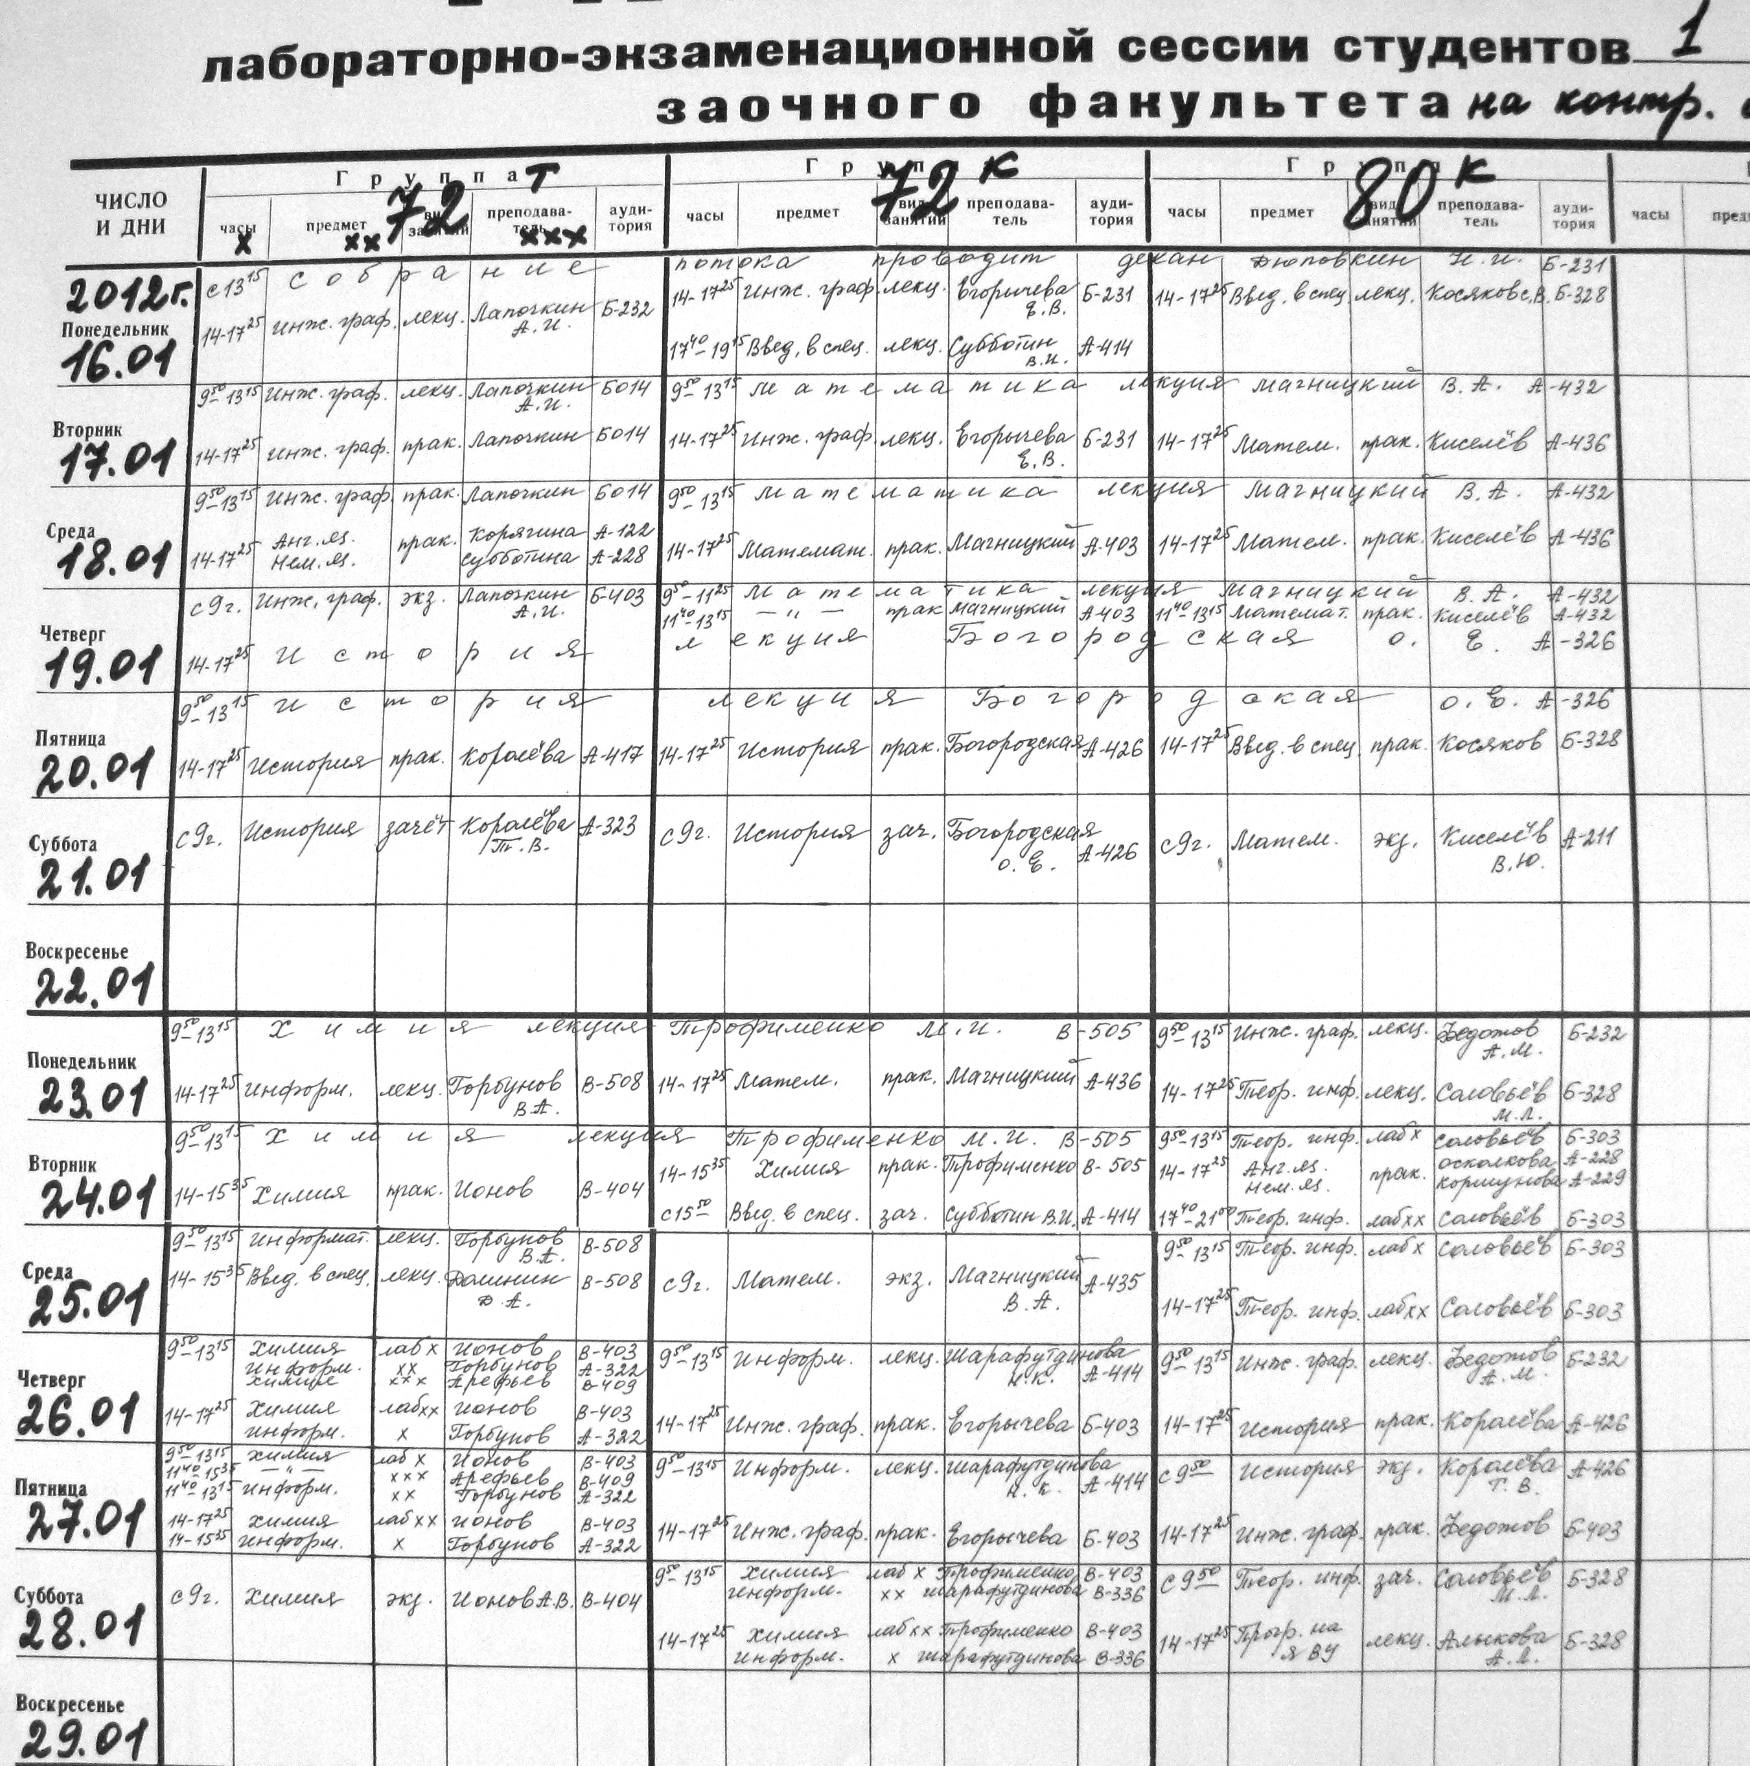 лабораторно-экзаменационной сессии студентов 1
заочного факультета на контр.
ЧИСЛО И ДНИ
Группа 72 т
Группа 72 к
Группа 80 к
часы предмет вид занятий преподаватель аудитория часы предмет вид занятий преподаватель аудитория часы предмет вид занятий преподаватель аудитория часы
х хх ххх
2012 г.
Понедельник 16.01
с 13 15 собрание потока проводит декан Дюповкин Н.И. Б-231
14-17 25 Инж. граф. лекц. Лапочкин А.И. Б-232
14-17 25 Инж. граф. лекц. Егорычева Е.В. Б-231
14-17 25 Введ. в спец. лекц. Косяков С.В. Б-328
17 40-19 15 Введ. в спец. лекц. Субботин В.И. А-414
Вторник 17.01
9 50-13 15 Инж. граф. лекц. Лапочкин А.И. Б014
9 50-13 15 математика лекция Магницкий В.А. А-432
14-17 25 Инж. граф. прак. Лапочкин Б014
14-17 25 Инж. граф. лекц. Егорычева Е.В. Б-231
14-17 25 Матем. прак. Киселёв А-436
Среда 18.01
9 50-13 15 Инж. граф. прак. Лапочкин Б014
9 50-13 15 математика лекция Магницкий В.А. А-432
14-17 25 Анг. яз. Нем. яз. прак. Корягина А-122 Субботина А-228
14-17 25 Математ. прак. Магницкий А-403
14-17 25 Матем. прак. Киселёв А-436
Четверг 19.01
с 9 г. Инж. граф. экз. Лапочкин А.И. Б-403
9 50-11 25 математика лекция Магницкий В.А. А-432
11 40-13 15 —"— прак Магницкий А-403
11 40-13 15 Математ. прак. Киселёв А-432
14-17 25 История лекция Богородская О. Е. А-326
Пятница 20.01
9 50-13 15 история лекция Богородская О.Е. А-326
14-17 25 История прак. Королёва А-417
14-17 25 История прак. Богородская А-426
14-17 25 Введ. в спец. прак. Косяков Б-328
Суббота 21.01
с 9 г. История зачёт Королёва Т.В. А-323
с 9 г. История зач. Богородская О.Е. А-426
с 9 г. Матем. экз. Киселёв В.Ю. А-211
Воскресенье 22.01
Понедельник 23.01
9 50-13 15 химия лекция Трофименко М.И. В-505
9 50-13 15 Инж. граф. лекц. Федотов А.М. Б-232
14-17 25 Информ. лекц. Горбунов В.А. В-508
14-17 25 Матем. прак. Магницкий А-436
14-17 25 Теор. инф. лекц. Соловьёв М.Л. Б-328
Вторник 24.01
9 50-13 15 химия лекция Трофименко М.И. В-505
9 50-13 15 Теор. инф. лаб х Соловьёв Б-303
14-15 35 Химия прак. Ионов В-404
14-15 35 Химия прак. Трофименко В-505
14-17 25 Анг. яз. Нем. яз. прак. Осколкова А-228 Кормунова А-229
с 15 50 Введ. в спец. зач. Субботин В.И. А-414
17 40-21 00 Теор. инф. лаб хх Соловьёв Б-303
Среда 25.01
9 50-13 15 Информат. лекц. Горбунов В.А. В-508
9 50-13 15 Теор. инф. лаб х Соловьёв Б-303
14-15 35 Введ. в спец. лекц. Долинин Д.А. В-508
с 9 г. Матем. экз. Магницкий В.А. А-435
14-17 25 Теор. инф. лаб хх Соловьёв Б-303
Четверг 26.01
9 50-13 15 Химия лаб х Ионов В-403
информ. хх Горбунов А-322
химия ххх Арефьев В-409
9 50-13 15 Информ. лекц. Шарафутдинова Н.К. А-414
9 50-13 15 Инж. граф. лекц. Федотов А.М. Б-232
14-17 25 Химия лаб хх Ионов В-403
информ. х Горбунов А-322
14-17 25 Инж. граф. прак. Егорычева Б-403
14-17 25 История прак. Королёва А-426
Пятница 27.01
9 50-13 15 Химия лаб х Ионов В-403
11 40-15 35 —"— ххх Арефьев В-409
11 40-13 15 Информ. хх Горбунов А-322
9 50-13 15 Информ. лекц. Шарафутдинова Н.К. А-414
с 9 50 История экз. Королёва Т.В. А-426
14-17 25 Химия лаб хх Ионов В-403
14-15 35 информ. х Горбунов А-322
14-17 25 Инж. граф. прак. Егорычева Б-403
14-17 25 Инж. граф. прак. Федотов Б-403
Суббота 28.01
с 9 г. Химия экз. Ионов А.В. В-404
9 50-13 15 Химия лаб х Трофименко В-403
информ. хх Шарафутдинова В-336
с 9 50 Теор. инф. зач. Соловьёв М.Л. Б-328
14-17 25 Химия лаб хх Трофименко В-403
информ. х Шарафутдинова В-336
14-17 25 Прогр. на я ВУ лекц. Алыкова А.Л. Б-328
Воскресенье 29.01